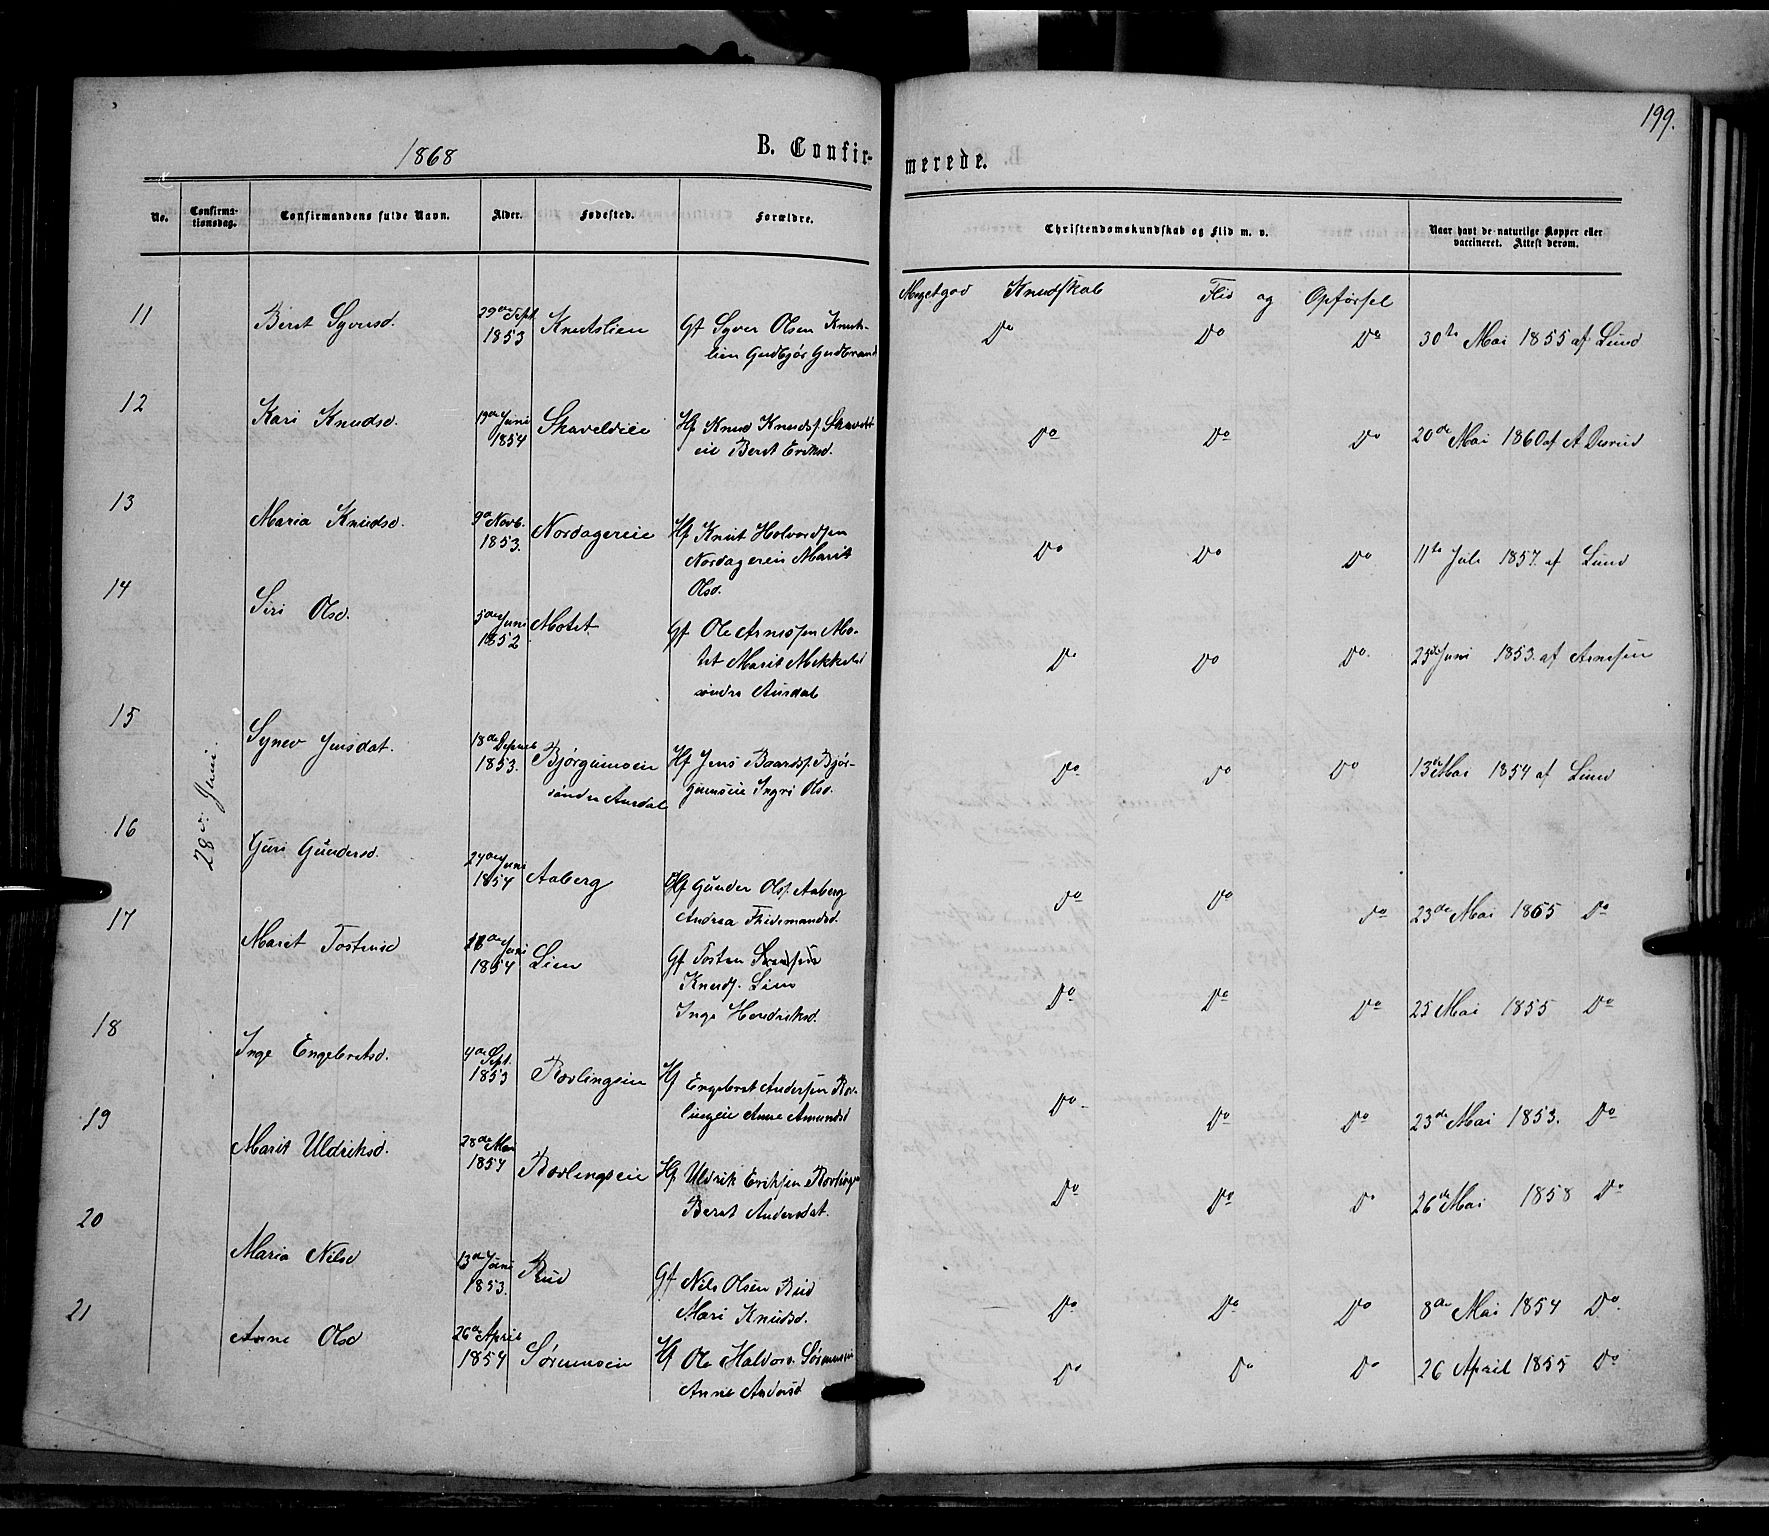 199.
1868
B. Confir-
merede.
No.
Confirma-
tionsdag.
Confirmandens fulde Navn.
Alder.
Fødested.
Forældre.
Christendomskundskab og Flid m. v.
Naar havt de naturlige Kopper eller
vaccineret. Attest derom.
Megetgod Knudskab Flid og Opførsel
28de Juni.
11 Beret Syversd. 29de Sept 1853 Knutslien Gf Syver Olsen Knuts-
lien Gudbjør Gudbrand
Do Do Do 30te Mai 1855 af Lund
12 Kari Knudsd. 19de Juni 1854 Skaveldeie Hf Knud Knuds.
eie Beret Eriksd.
Do Do Do 20de Mai 1860 af A
13 Maria Knudsd. 9de Novb. 1853. Nordagereie Hf Knut Halvordsen
Nordagereie Marit
Olsd.
Do Do Do 11te Juli 1857. af Lund
14 Siri Olsd. 5de Juni 1852 Motet Gf Ole Arnesen Mo-
tet Marit Mekkelsd
søndre Aurdal
Do Do Do 25de Juni 1853. af Arnesen
15 Synev Jensdat. 18de 1853. Bjørgumseie
søndre Aurdal
Hf Jens Baards. Bjør-
gumseie Ingri Olsd.
Do Do Do 13de Mai 1854 af Lund
16 Guri Gundersd. 24de Juni 1854 Aaberg Hf Gunder Ols. Aaberg
Andrea Thidemandsd.
Do Do Do 23de Mai 1865 Do
17 Marit Tostensd 18de Juni 1854 Lien Gf Tosten
Knuds. Lien
Inge Hendriksd.
Do Do Do 25 Mai 1855 Do
18 Inge Engebretsd. 4de Sept. 1853 Røvlingseie Hf Engebret Andersen Røv-
lingeie Anne Amundsd
Do Do Do 23de Mai 1853. Do
19 Marit Uldriksd. 28de Mai 1854 Røvlingseie Hf Uldrik Eriksen Røvlings
Beret Andersdat.
Do Do Do 26de Mai 1858 Do
20 Maria Nilsd 13de Juni 1853. Rud Gf Nils Olsen Rud
Mari Knudsd.
Do Do Do 8de Mai 1854 Do.
21 Anne Olsd 26de April 1854 Sørumseie Hf Ole Haldors. Sørumseie
Anne Andersd
Do Do Do 26 April 1855 Do